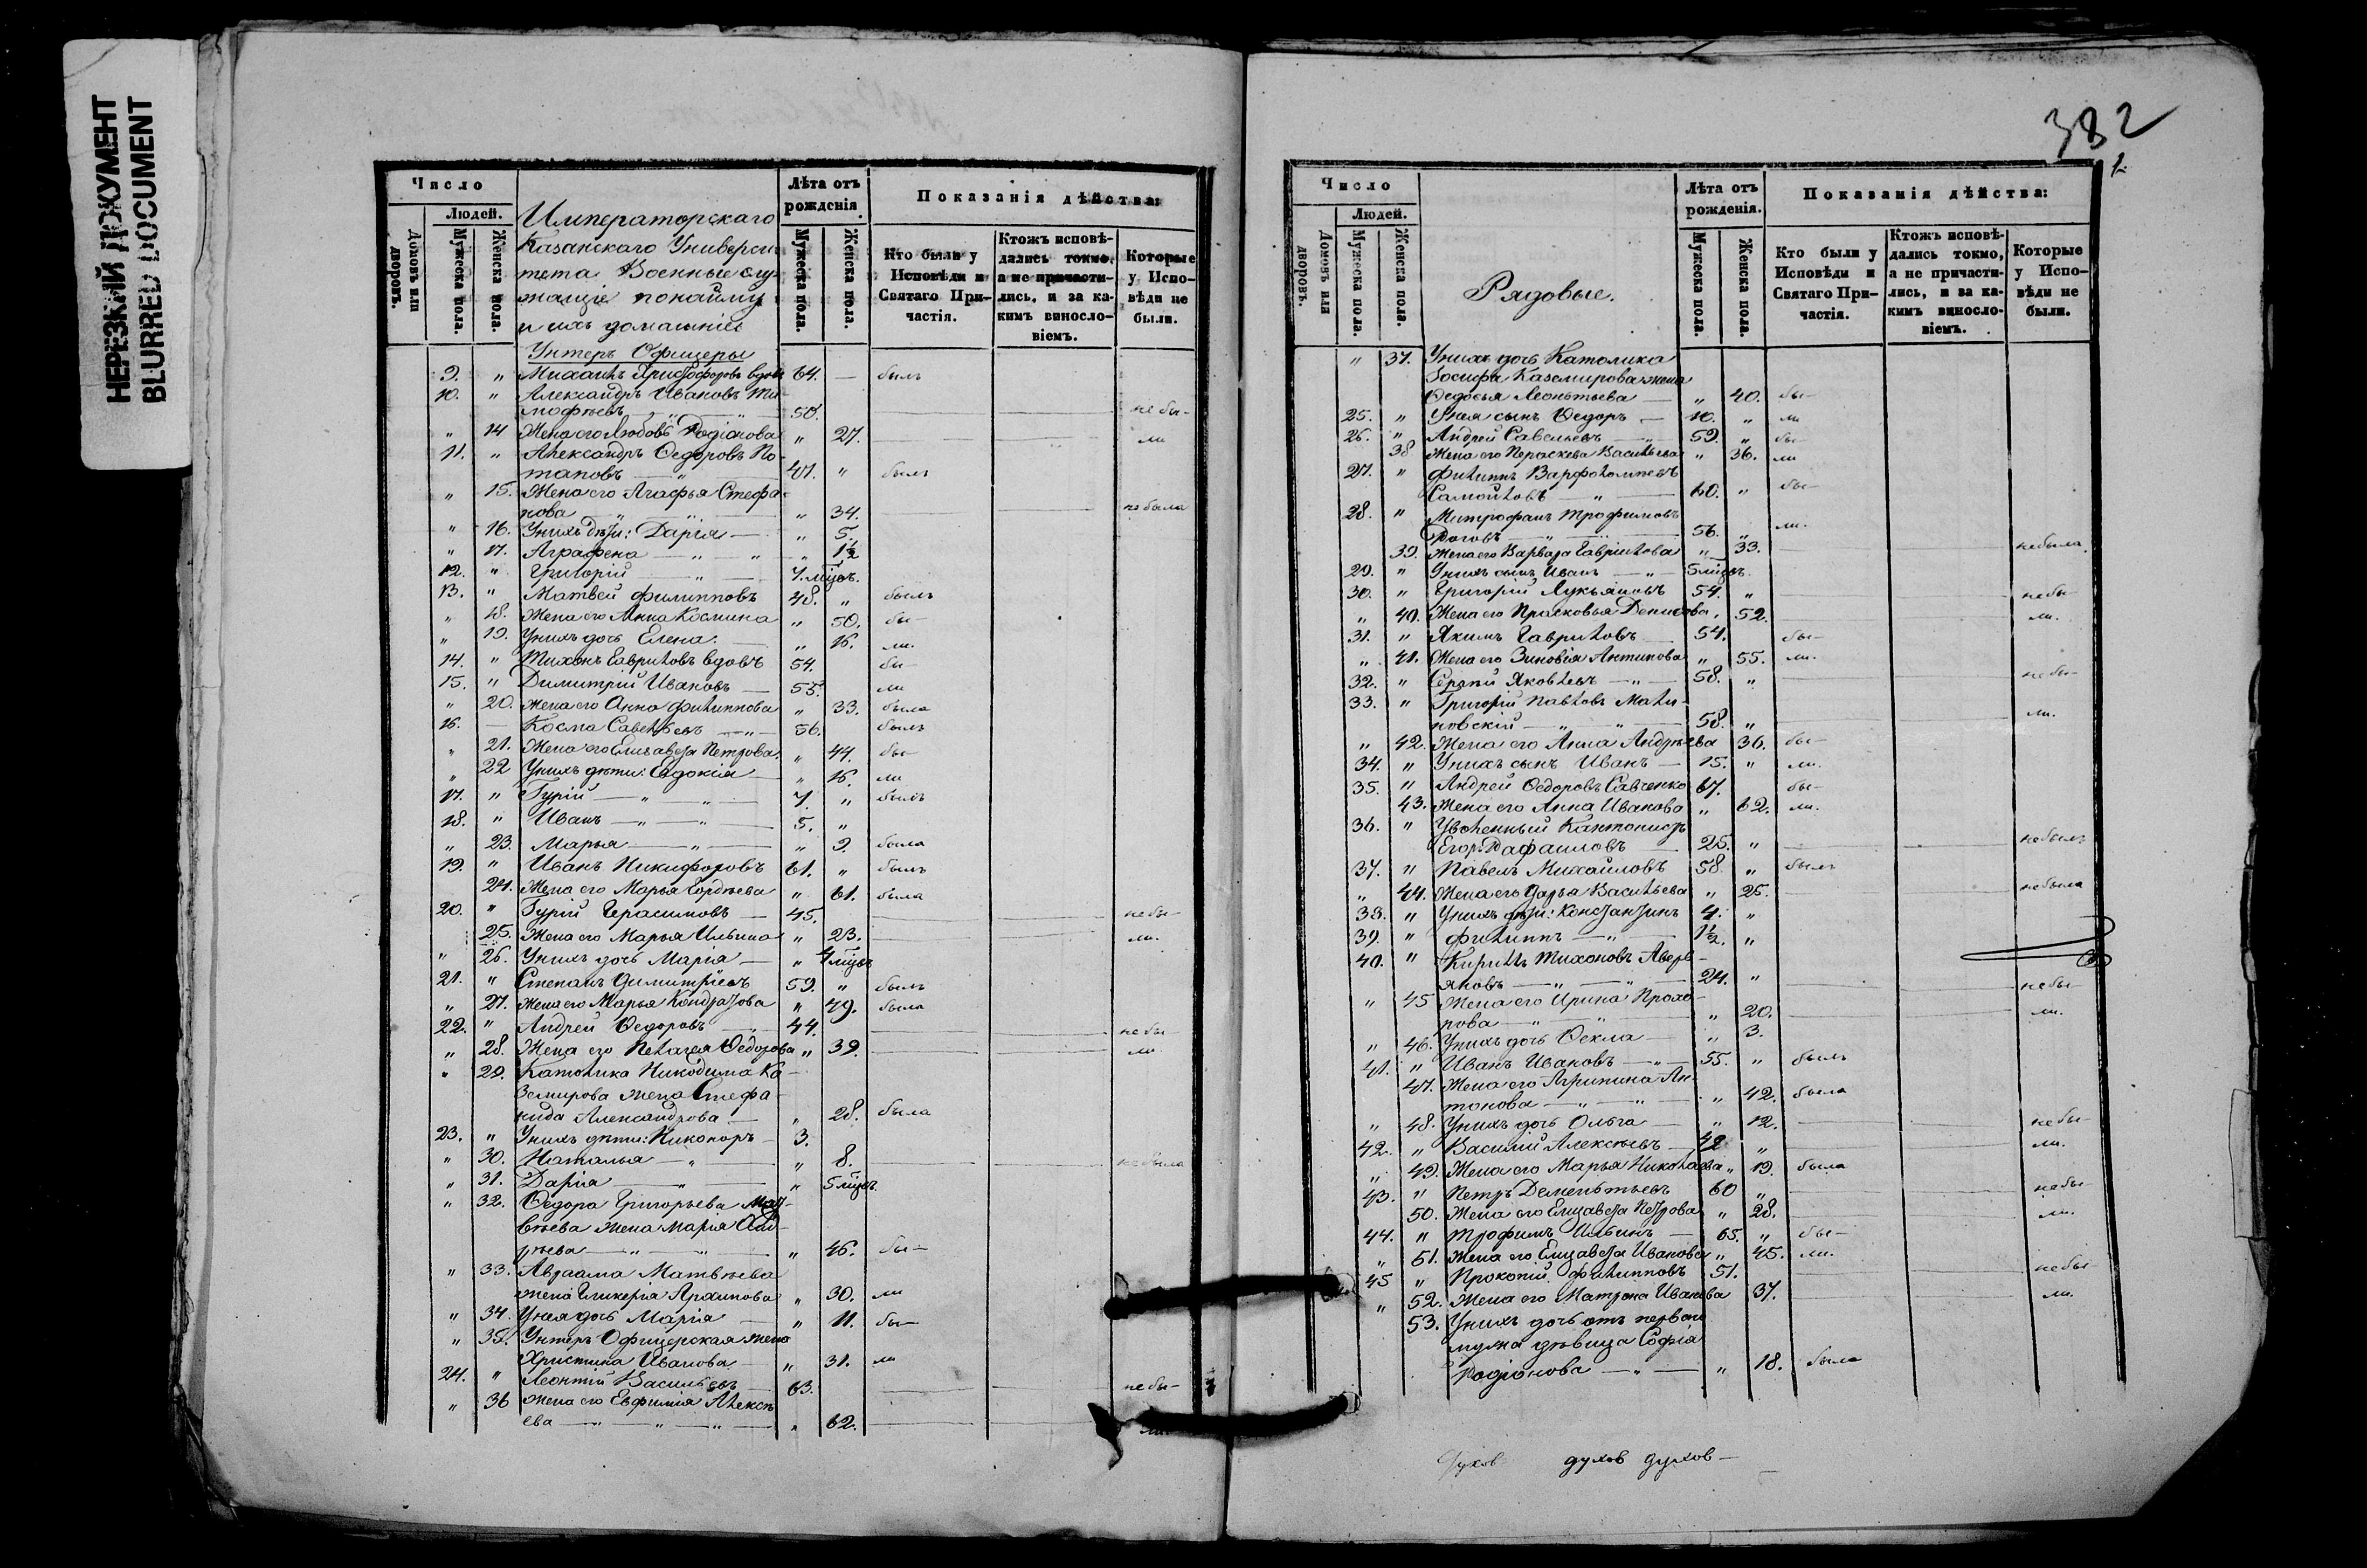 НЕРЕЗКИЙ ДОКУМЕНТ
BLURRED DOCUMENT
Число
Людей.
Домовъ или дворовъ.
Мужеска пола.
Женска пола.
Императорскаго
Казанскаго Универси
тета Военные слу
жащіе по найму
и ихъ домашніе
Лѣта отъ рожденія.
Мужеска пола.
Женска пола.
Показанія дѣйства:
Кто были у Исповѣди и Святаго Причастія.
Ктожъ исповѣдались токмо, а не причастились, и за какимъ винословіемъ.
Которые у Исповѣди не были.
Унтеръ Офицеры
9. " Михаилъ Христофоровъ вдовъ 64. — былъ
10. " Александръ Ивановъ Ти
мофѣевъ 50. не бы-
" 14 Жена его Любовь Родіонова " 27. ли
11. " Александръ Ѳедоровъ По
таповъ 47. " былъ
" 15. Жена его Агафья Стефа-
нова " 34. не была
" 16. У нихъ дѣти: Дарія " 5.
" 17. Аграфена " 1½
12. " Григорій 7. мѣсцъ.
13. " Матвей Филипповъ 48. " былъ
" 18. Жена его Анна Космина " 50. бы-
" 19. У нихъ дочь Елена " 16. ли.
14. " Тихонъ Гавриловъ вдовъ 54. бы-
15. " Димитрій Ивановъ 55. ли
" 20. Жена его Анна Филиппова " 33. была
16. — Косма Савельевъ 56. былъ
" 21. Жена его Елисавета Петрова " 44. бы-
" 22 У нихъ дѣти: Евдокія " 16. ли
17. " Гурій 7. " былъ
18. " Иванъ 5. "
" 23. Марья " 9. была
19. " Иванъ Никифоровъ 61. " былъ
24. Жена его Марья Гордѣева " 61. была
20. " Гурій Герасимовъ 45. не бы-
25. Жена его Марья Ильина " 23. ли.
" 26. У нихъ дочь Марія " 4 мѣсцъ
21. " Степанъ Димитріевъ 59. " былъ
" 27. Жена его Марья Кондратова " 49. была
22. " Андрей Ѳедоровъ 44. не бы-
" 28. Жена его Пелагея Ѳедорова " 39. ли
" 29. Католика Никодима Ка-
земирова жена Стефа-
нида Александрова " 28. была
23. " У нихъ дѣти: Никоноръ 3.
" 30. Наталья " 8. не была
" 31. Дарія " 5 мѣсцъ.
" 32. Ѳедора Григорьева Мат-
вѣева жена Марія Анд-
рѣева " 46. бы-
" 33. Авраама Матвѣева
жена Гликерія Архипова " 30. ли
" 34. У нея дочь Марія " 11. бы-
" 35. Унтеръ Офицерская жена
Христина Иванова " 31. ли
24. " Леонтій Васильевъ 63. не бы-
" 36 Жена его Евфимія Алексѣ
ева " 62. ли
382
Число
Людей.
Домовъ или дворовъ.
Мужеска пола.
Женска пола.
Рядовые.
Лѣта отъ рожденія.
Мужеска пола.
Женска пола.
Показанія дѣйства:
Кто были у Исповѣди и Святаго Причастія.
Ктожъ исповѣдались токмо, а не причастились, и за какимъ винословіемъ.
Которые у Исповѣди не были.
" 37. У нихъ дочь Католика
Іосифа Каземирова жена
Ѳедосья Леонтьева " 40. бы-
25. " У нея сынъ Ѳедоръ 10. " ли
26. " Андрей Савельевъ 59. " бы-
38 Жена его Пераскева Васильева " 36. ли
27. " Филиппъ Варфоломеевъ
Самойловъ 60. " бы-
28. " Митрофанъ Трофимовъ
Роговъ 56. " ли.
39. Жена его Варвара Гавриилова " 33. не была.
29. " У нихъ сынъ Иванъ 5 мѣсцъ.
30. " Григорій Лукьяновъ 54. " не бы-
" 40. Жена его Прасковья Денисова " 52. ли.
31. " Якимъ Гавриловъ 54. бы-
" 41. Жена его Зиновія Антипова " 55. ли.
32. " Сергій Яковлевъ 58. " не бы-
33. " Григорій Павловъ Мали-
новскій 58. " ли.
" 42. Жена его Анна Андрѣева 36. бы-
34. " У нихъ сынъ Иванъ 15. " ли.
35. " Андрей Ѳедоровъ Савченко 67. бы-
43. Жена его Анна Иванова " 62. ли.
36. " Уволенный Кантонистъ
Егоръ Рафаиловъ 25. " не былъ
37. " Павелъ Михайловъ 58. " былъ
" 44. Жена его Дарья Васильева " 25. не была
38. " У нихъ дѣти: Константинъ 4. "
39. " Филиппъ 1½. "
40. " Кириллъ Тихоновъ Аверь-
яновъ 24. " не бы-
" 45 Жена его Ирина Прохо-
рова " 20. ли.
" 46. У нихъ дочь Ѳекла " 3.
41. " Иванъ Ивановъ 55. " былъ
47. Жена его Агрипина Ан-
тонова " 42. была
" 48. У нихъ дочь Ольга " 12. не бы-
42. " Василій Алексѣевъ 42 " ли.
" 49. Жена его Марья Николаева " 19. была
43. " Петръ Дементьевъ 60 " не бы-
50. Жена его Елисавета Петрова " 28. ли.
44. " Трофимъ Ильинъ 65. " бы-
" 51. Жена его Елисавета Иванова " 45. ли.
45 " Прокопій Филипповъ 51. не бы-
" 52. Жена его Матрона Иванова 37. ли.
53. У нихъ дочь отъ перваго
мужа дѣвица Софія
Родіонова " 18. была
Духов духов духов-